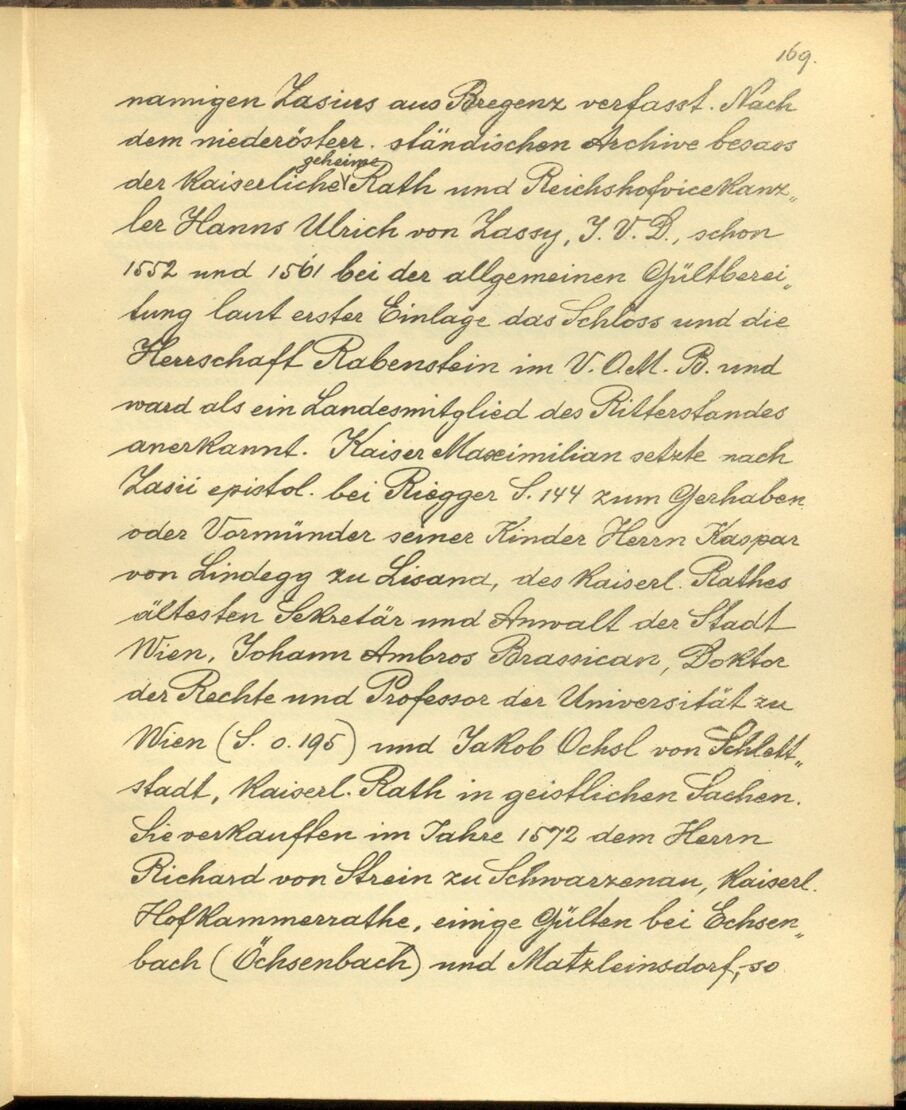 169.
namigen Zasius aus Bregenz verfasst. Nach
dem niederösterr. ständischen Archive besass
geheime
der kaiserliche Rath und Reichshofvicekanz„
ler Hanns Ulrich von Zassy, J. V. D., schon
1552 und 1561 bei der allgemeinen Gültberei„
tung laut erster Einlage das Schloss und die
Herrschaft Rabenstein im V. O. M. B. und
ward als ein Landesmitglied des Ritterstandes
anerkannt. Kaiser Maximilian setzte nach
Zasii epistol. bei Riegger S. 144 zum Gerhaben
oder Vormünder seiner Kinder Herrn Kaspar
von Lindegg zu Lisand, des kaiserl. Rathes
ältesten Sekretär und Anwalt der Stadt
Wien, Johann Ambros Brassican, Doktor
der Rechte und Professor der Universität zu
Wien (S. o. 195) und Jakob Ochsl von Schlett„
stadt, kaiserl. Rath in geistlichen Sachen.
Sie verkauften im Jahre 1572 dem Herrn
Richard von Strein zu Schwarzenau, kaiserl.
Hofkammerrathe, einige Gülten bei Echsen„
bach (Öchsenbach) und Matzleinsdorf, so